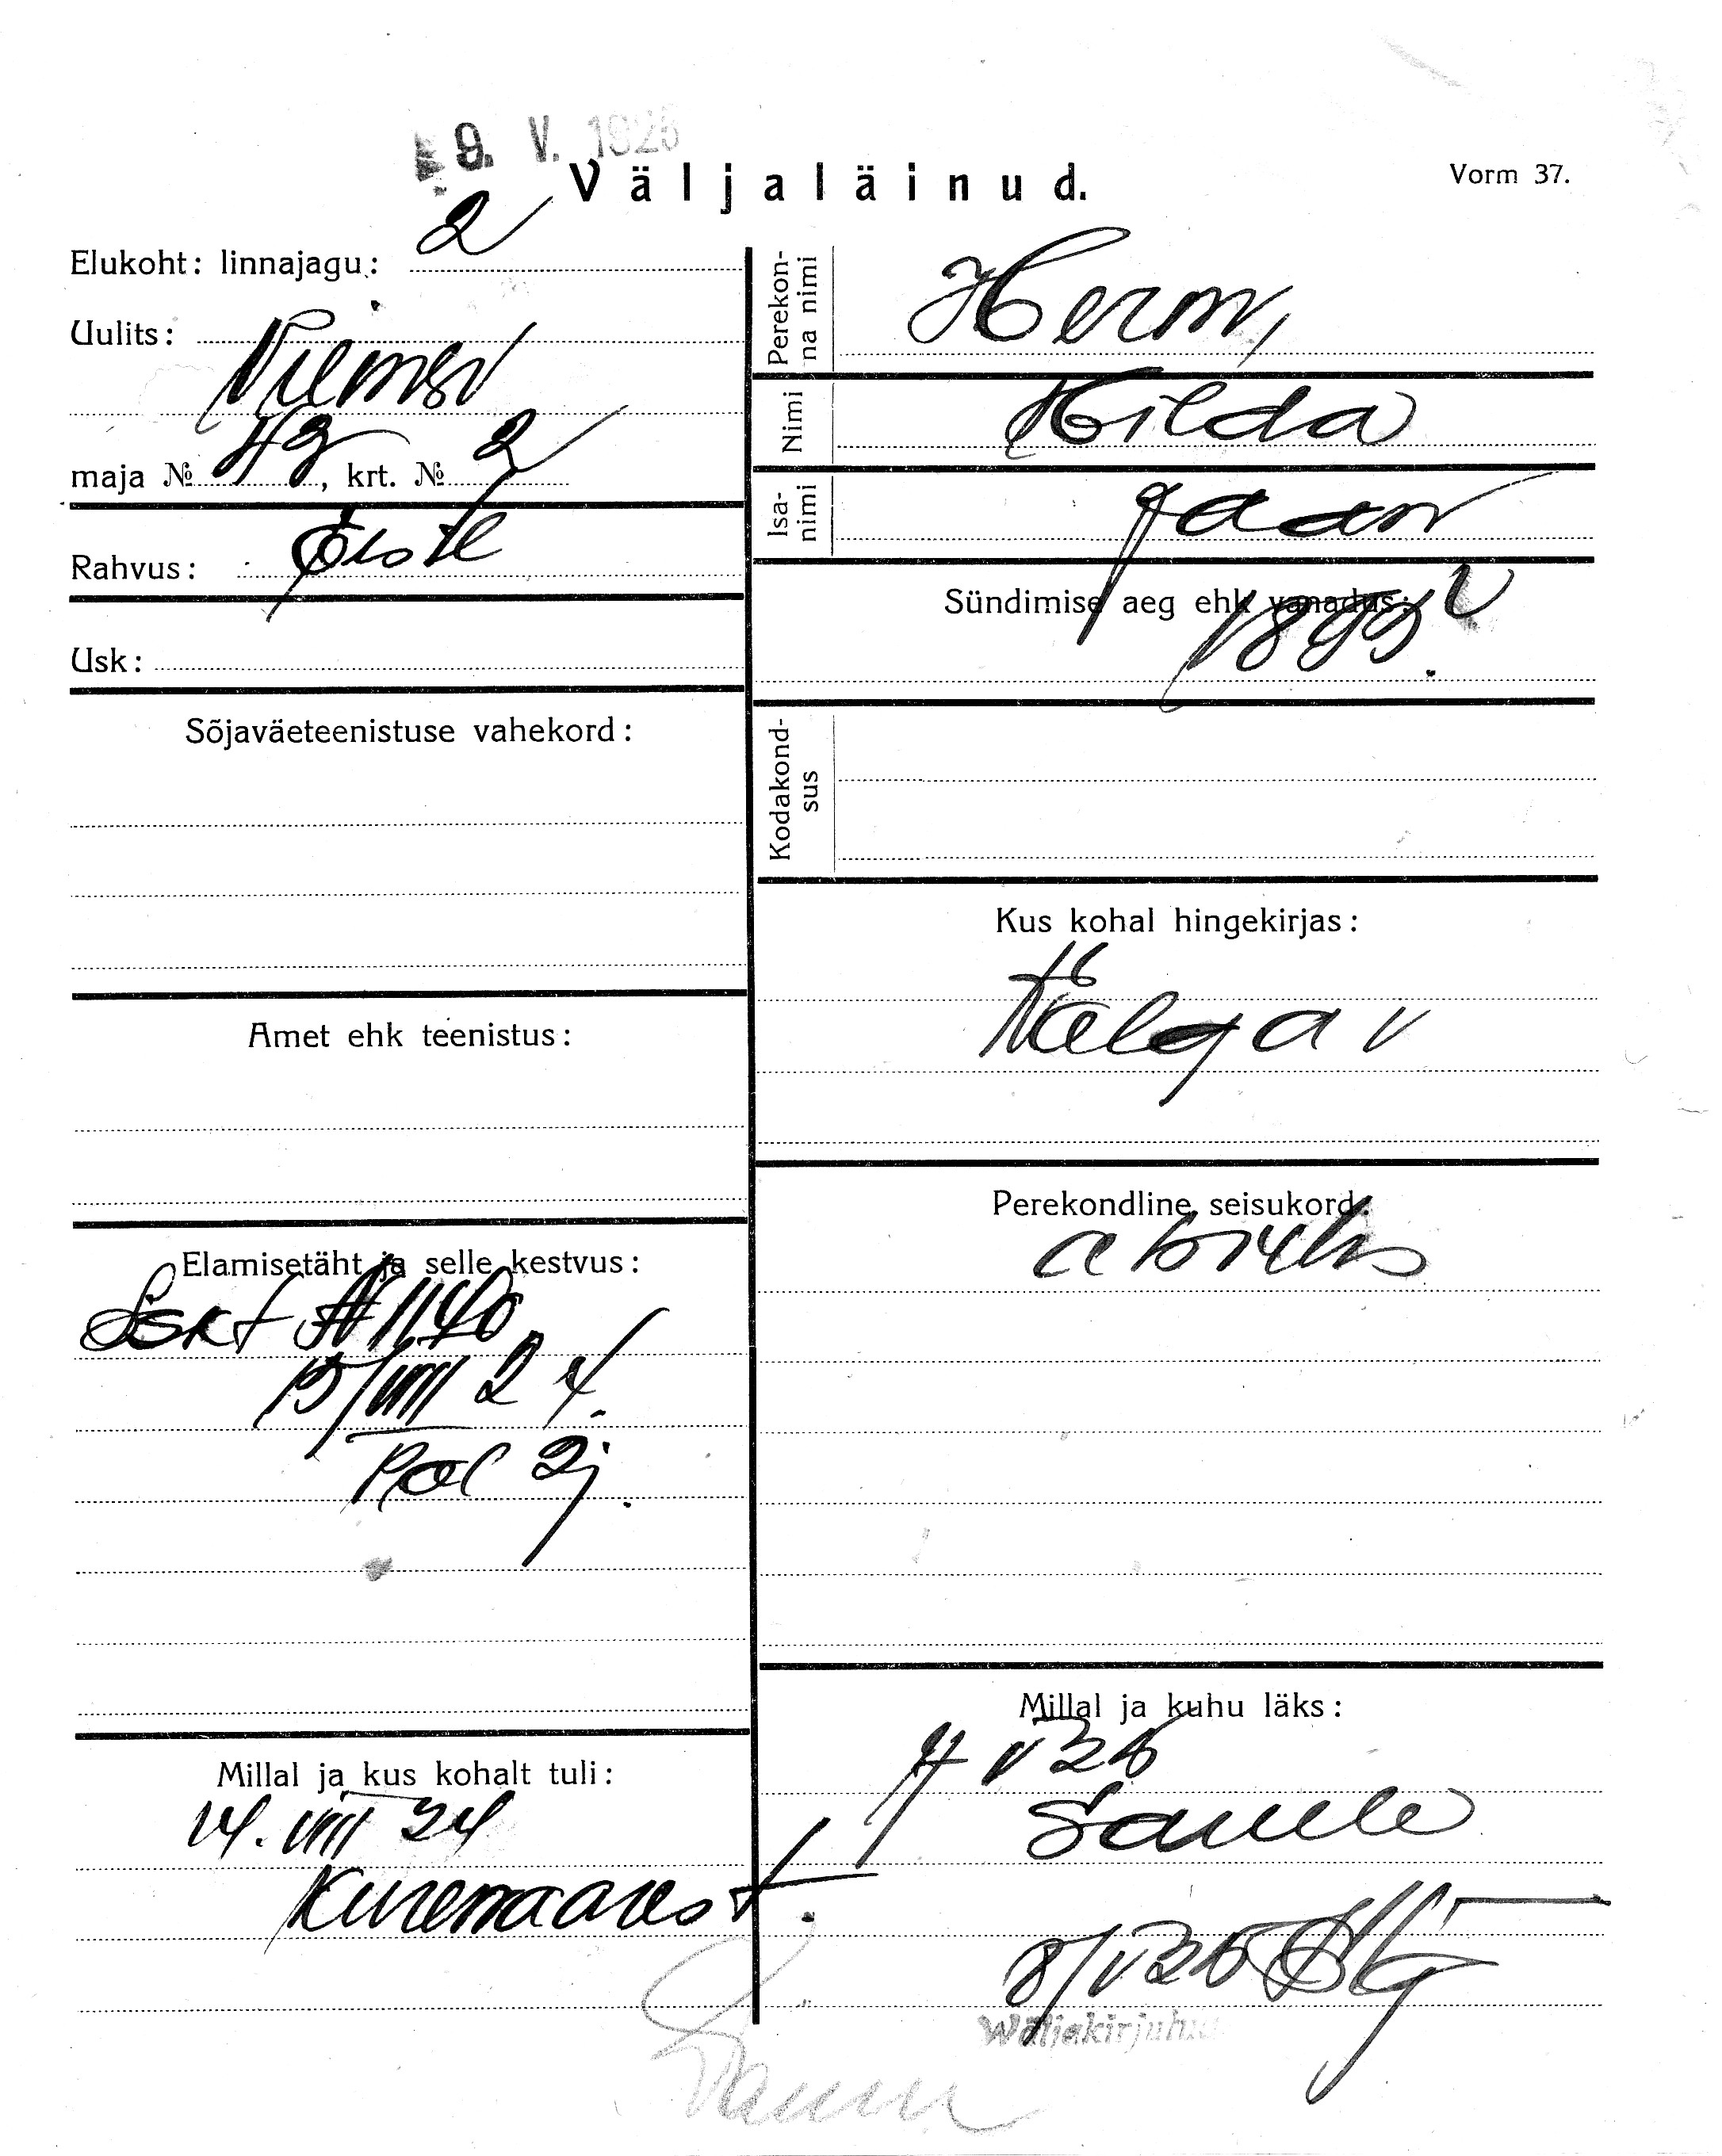 9. V. 1925
Väljaläinud.
Vorm 37.
Elukoht: linnajagu: 2
Uulits:
maja № 42, krt. № 2
Rahvus: Eesti
Usk:
Sõjaväeteenistuse vahekord:
Amet ehk teenistus:
Elamisetäht ja selle kestvus:
№ 1140
15/VIII 24.
Pol 2j.
Millal ja kus kohalt tuli:
14. VIII 24
Kuremaarest.
Perekon-
na nimi
Herm,
Nimi
Hilda
Isa-
nimi
Jaan
Sündimise aeg ehk vanadus:
1899.
Kodakond-
sus
Kus kohal hingekirjas:
Kus kohal hingekirjas:
Perekondline seisukord:
abielus
Millal ja kuhu läks:
V 25
8/V 25
Wäljakirjutu